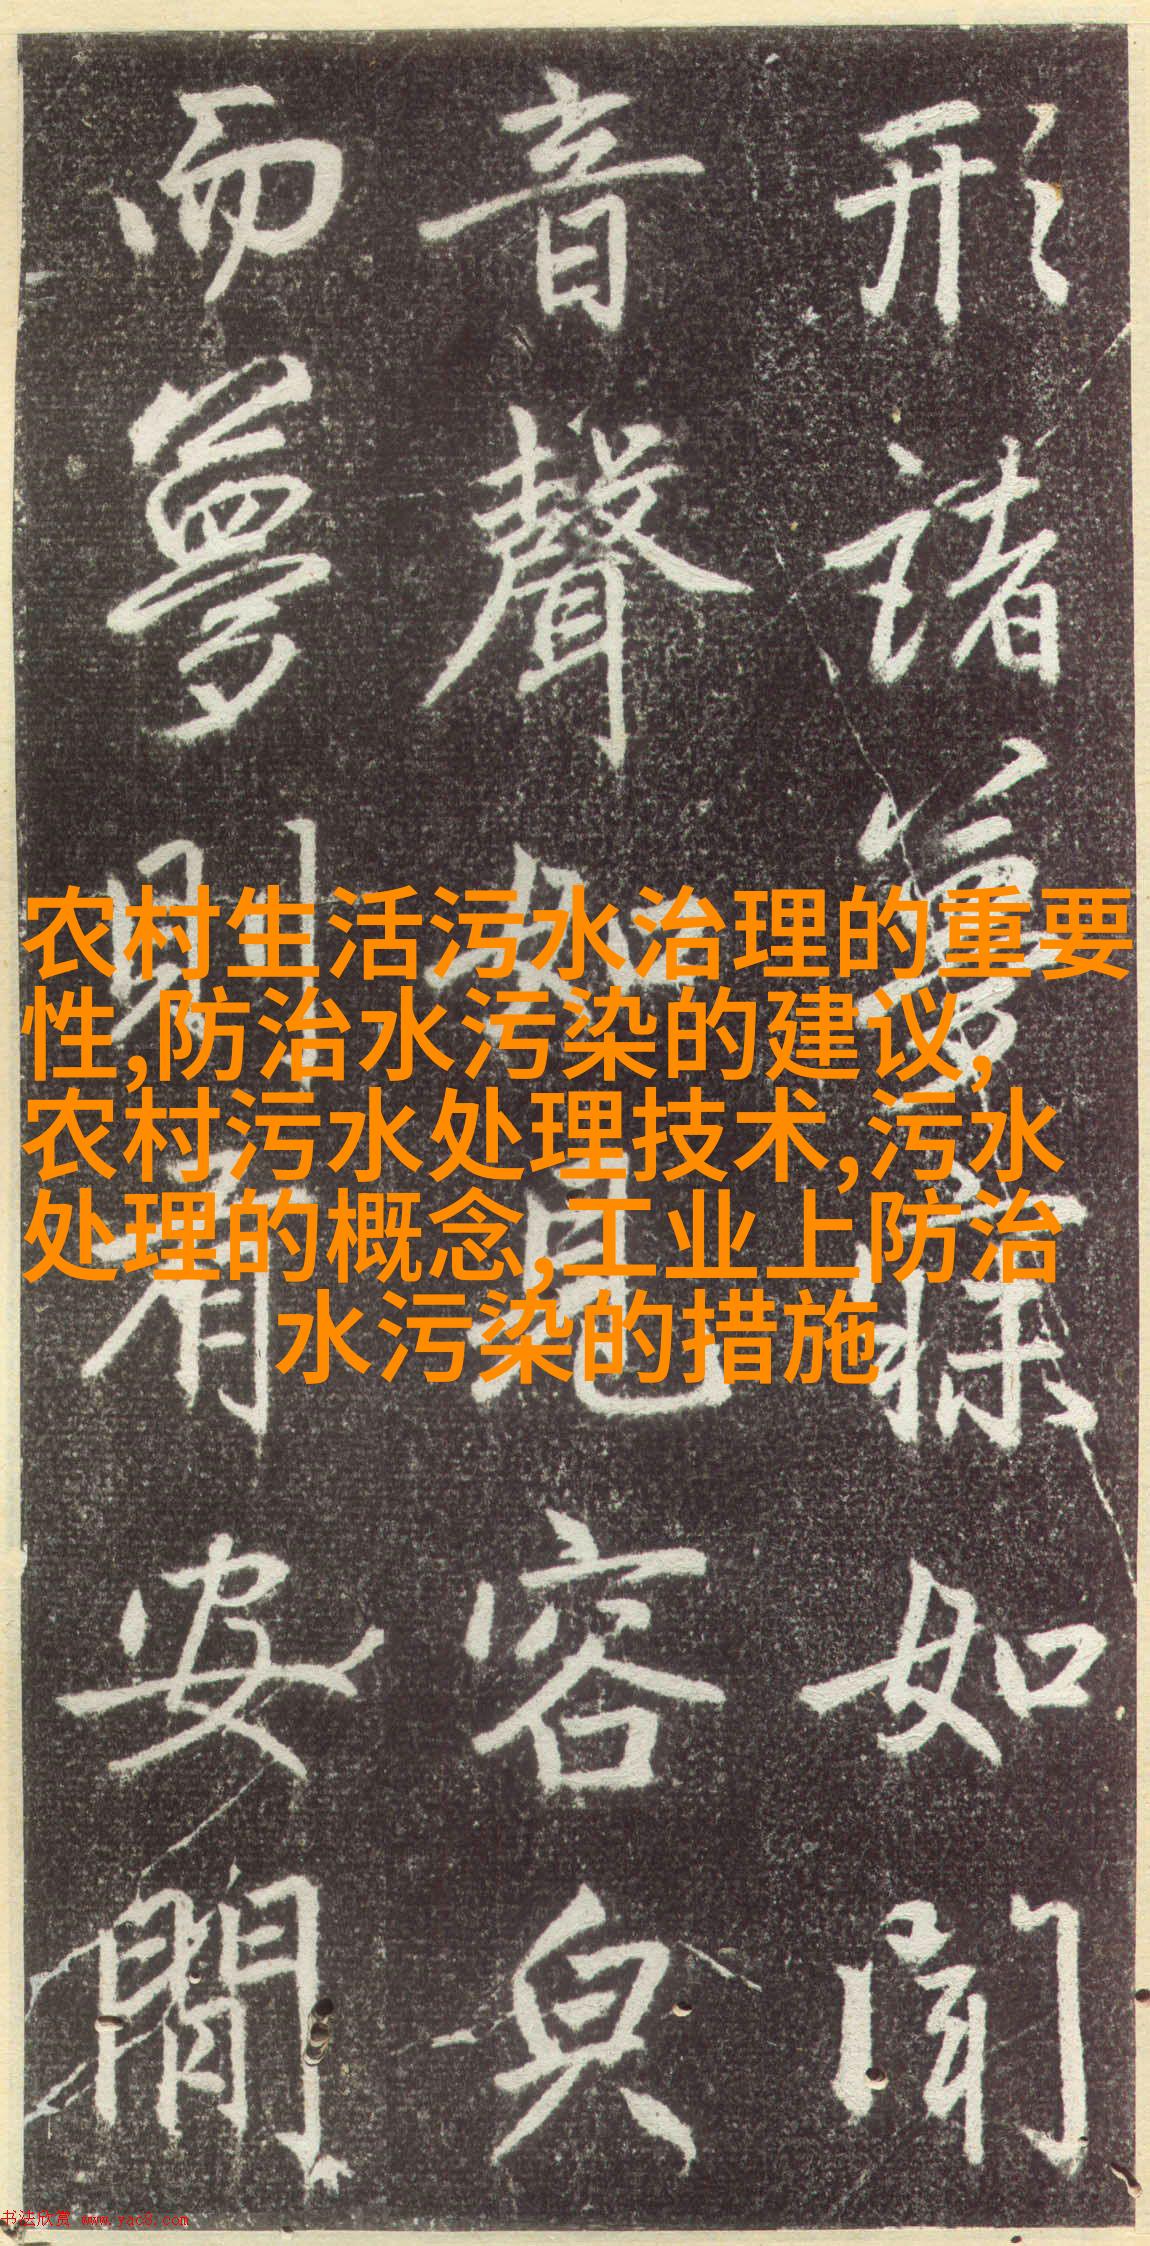 形諸夢寐如聞
音聲如見容皃
而夢則有安閒
农村生活污水治理的重要
性,防治水污染的建议,
农村污水处理技术,污水
处理的概念,工业上防治
水污染的措施
书法欣赏 www.yac8.com